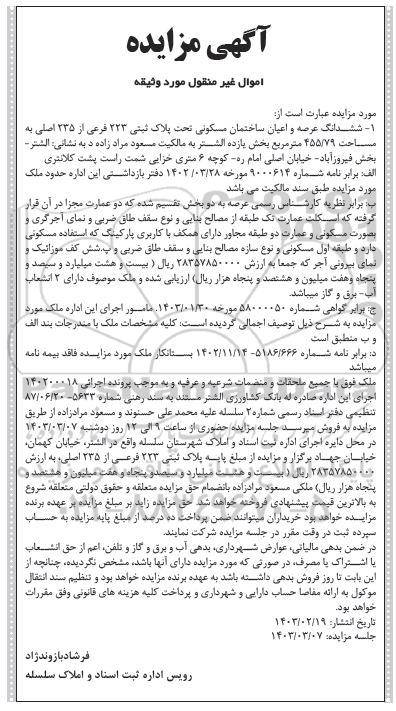 آگهی مزایده
اموال غیر منقول مورد وثیقه
مورد مزایده عبارت است از:
۱- ششدانگ عرصه و اعیان ساختمان مسکونی تحت پلاک ثبتی ۲۲۳ فرعی از ۲۳۵ اصلی به
مساحت ۴۵۵/۷۹ مترمربع بخش یازده الشتر به مالکیت مسعود مراد زاده د به نشانی: الشتر-
بخش فیروزآباد- خیابان اصلی امام ره- کوچه ۶ متری خزایی شمت راست پشت کلانتری
الف: برابر نامه شماره ۹۰۰۰۶۱۴ مورخه ۱۴۰۲/۰۳/۲۸ دفتر بازداشتی این اداره حدود ملک
مورد مزایده طبق سند مالکیت می باشد
ب: برابر نظریه کارشناس رسمی عرصه به دو بخش تقسیم شده که دو عمارت مجزا در آن قرار
گرفته که اسکلت عمارت تک طبقه از مصالح بنایی و نوع سقف طاق ضربی و نمای آجرگری و
بصورت مسکونی و عمارت دو طبقه مجاور دارای همکف با کاربری پارکینگ که استفاده مسکونی
دارد و طبقه اول مسکونی و نوع سازه مصالح بنایی و سقف طاق ضربی و پ.شش کف موزائیک و
نمای بیرونی آجر که جمعا به ارزش ۲۸۳۵۷۸۵۰۰۰۰ ریال ( بیست و هشت میلیارد و سیصد و
پنجاه وهفت میلیون و هشتصد و پنجاه هزار ریال) ارزیابی شده و ملک موصوف دارای ۲ انشعاب
آب- برق و گاز میباشد.
ج: برابر گواهی شماره ۵۸۰۰۰۰۵۰ مورخه ۱۴۰۳/۰۱/۳۰. مامور اجرای این اداره ملک مورد
مزایده به شرح ذیل توصیف اجمالی گردیده است: کلیه مشخصات ملک با مندرجات بند الف
و ب منطبق است
د: برابر نامه شماره ۵۱۸۶/۶۶۶- ۱۴۰۲/۱۱/۱۴ بستانکار ملک مورد مزایده فاقد بیمه نامه
میباشد
ملک فوق با جمیع ملحقات و منضمات شرعیه و عرفیه و به موجب پرونده اجرائی ۱۴۰۲۰۰۰۱۸
اجرای این اداره صادره له بانک کشاورزی الشتر مستند به سند رهنی شماره ۵۶۳۳- ۸۷/۰۶/۲۰
تنظیمی دفتر اسناد رسمی شماره۲ سلسله علیه محمد علی حسنوند و مسعود مرادزاده از طریق
مزایده به فروش میرسد جلسه مزایده حضوری از ساعت ۹ الی ۱۲ روز دوشنبه ۱۴۰۳/۰۳/۰۷
در محل دایره اجرای اداره ثبت اسناد و املاک شهرستان سلسله واقع در الشتر، خیابان کهمان،
خیابان جهاد برگزار و مزایده از مبلغ پایه پلاک ثبتی ۲۲۳ فرعی از ۲۳۵ اصلی، به ارزش
۲۸۳۵۷۸۵۰۰۰۰ ریال ( بیست و هشت میلیارد و سیصدو پنجاه و هفت میلیون و هشتصد و
پنجاه هزار ریال) ملکی مسعود مرادزاده بانضمام حق مزایده متعلقه و حقوق دولتی متعلقه شروع
به بالاترین قیمت پیشنهادی فروخته خواهد شد. حق مزایده زاید بر مبلغ مزایده بر عهده برنده
مزایده خواهد بود خریداران میتوانند ضمن پرداخت ده درصد از مبلغ پایه مزایده به حساب
سپرده ثبت در وقت مقرر در جلسه مزایده شرکت نمایند.
در ضمن بدهی مالیاتی، عوارض شهرداری، بدهی آب و برق و گاز و تلفن، اعم از حق انشعاب
یا اشتراک یا مصرف، در صورتی که مورد مزایده دارای آنها باشد، مشخص نگردیده، چنانچه از
این بابت تا روز فروش بدهی داشته باشد به عهده برنده مزایده خواهد بود و تنظیم سند انتقال
موکول به ارائه مفاصا حساب دارایی و شهرداری و پرداخت کلیه هزینه های قانونی وفق مقررات
خواهد بود.
تاریخ انتشار: ۱۴۰۳/۰۲/۱۹
جلسه مزایده: ۱۴۰۳/۰۳/۰۷
فرشادبازوندنژاد
رویس اداره ثبت اسناد و املاک سلسله